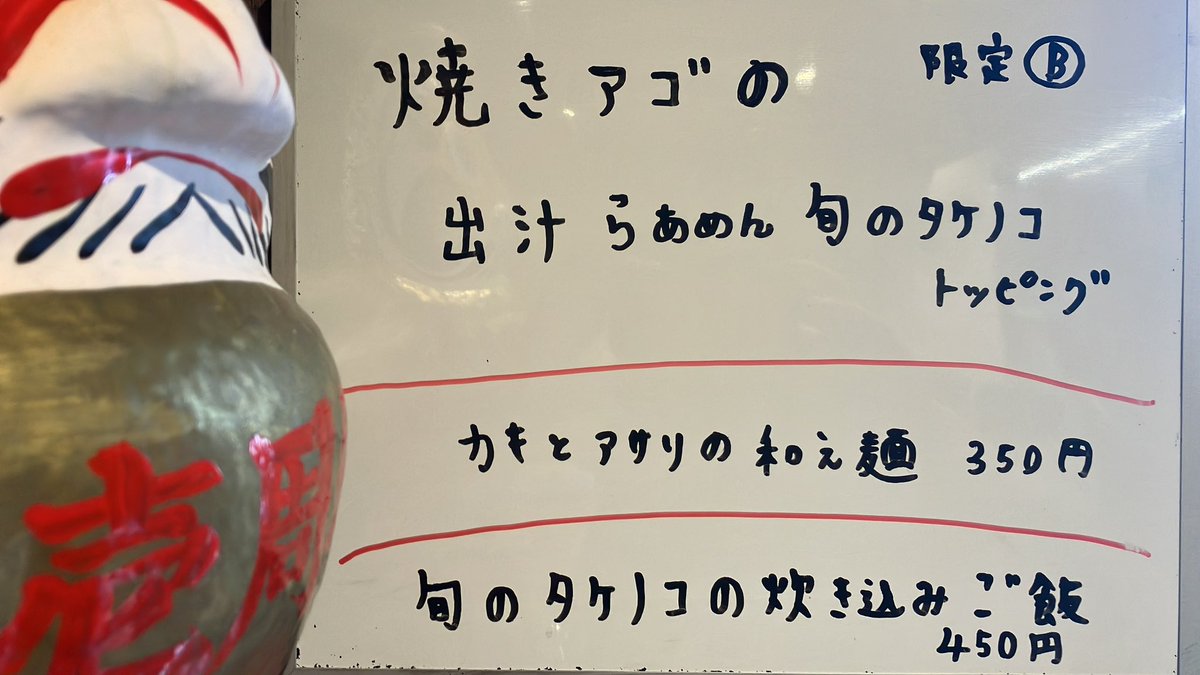 焼きアゴの
限定Ⓑ
出汁らあめん 旬のタケノコ
トッピング
カキとアサリの和え麺 350円
旬のタケノコの炊き込みご飯
450円